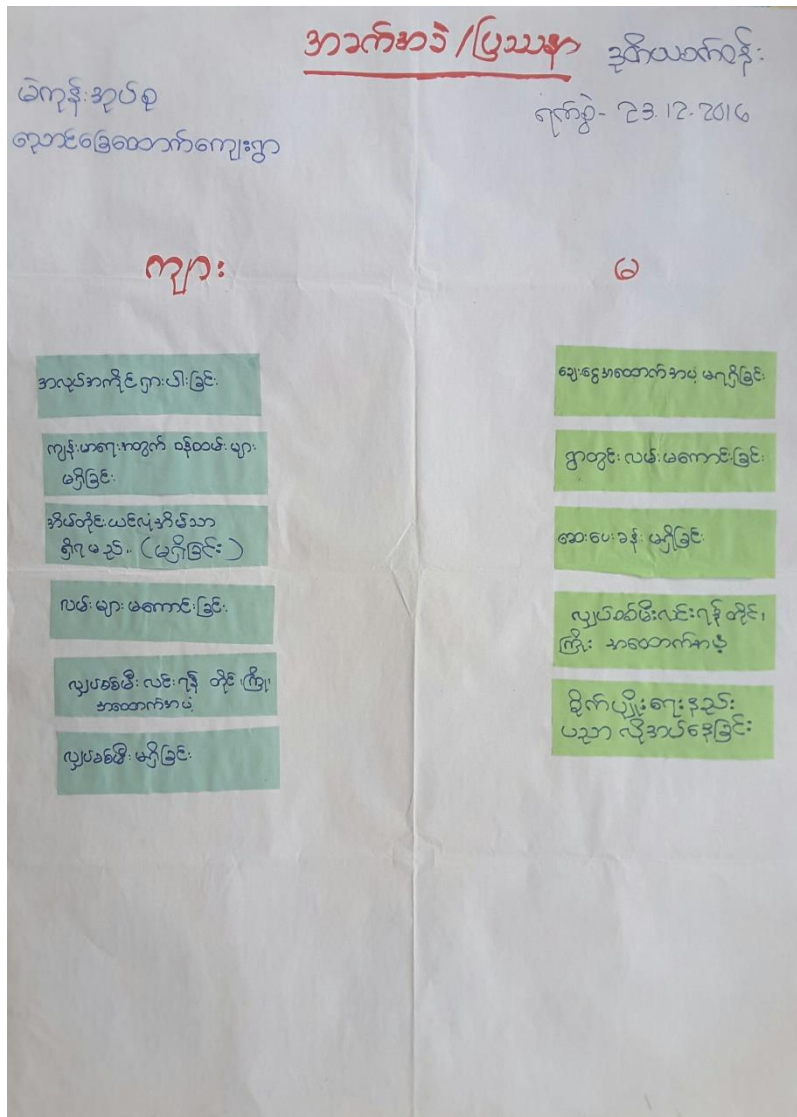 အခက်အခဲ/ပြဿနာ
ဒုတိယသက်ဝန်း
မဲကုန်းအုပ်စု
ရက်စွဲ- 23.12.2016
ညောင်ခြေထောက်ကျေးရွာ
ကျား
အလုပ်အကိုင်ရှားပါးခြင်း
ကျန်းမာရေးအတွက် ဝန်ထမ်းများ
မရှိခြင်း
အိမ်တိုင်းယင်လုံအိမ်သာ
ရှိရမည်.. (မရှိခြင်း)
လမ်းများမကောင်းခြင်း
လျှပ်စစ်မီးလင်းရန် တိုင်၊ကြိုး
အထောက်အပံ့
လျှပ်စစ်မီးမရှိခြင်း
မ
ချေးငွေအထောက်အပံ့မရရှိခြင်း
ရွာတွင်းလမ်းမကောင်းခြင်း
ဆေးပေးခန်းမရှိခြင်း
လျှပ်စစ်မီးလင်းရန်တိုင်၊
ကြိုး အထောက်အပံ့
စိုက်ပျိုးရေးနည်း
ပညာလိုအပ်နေခြင်း